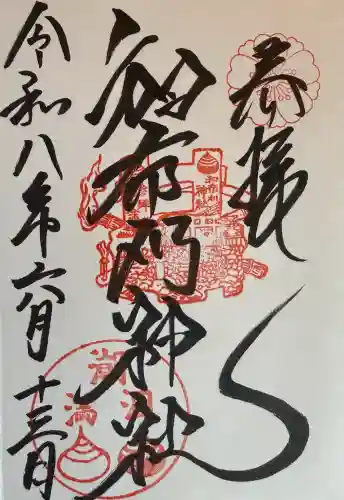 奉拝
和布刈神社
令和八年六月十三日